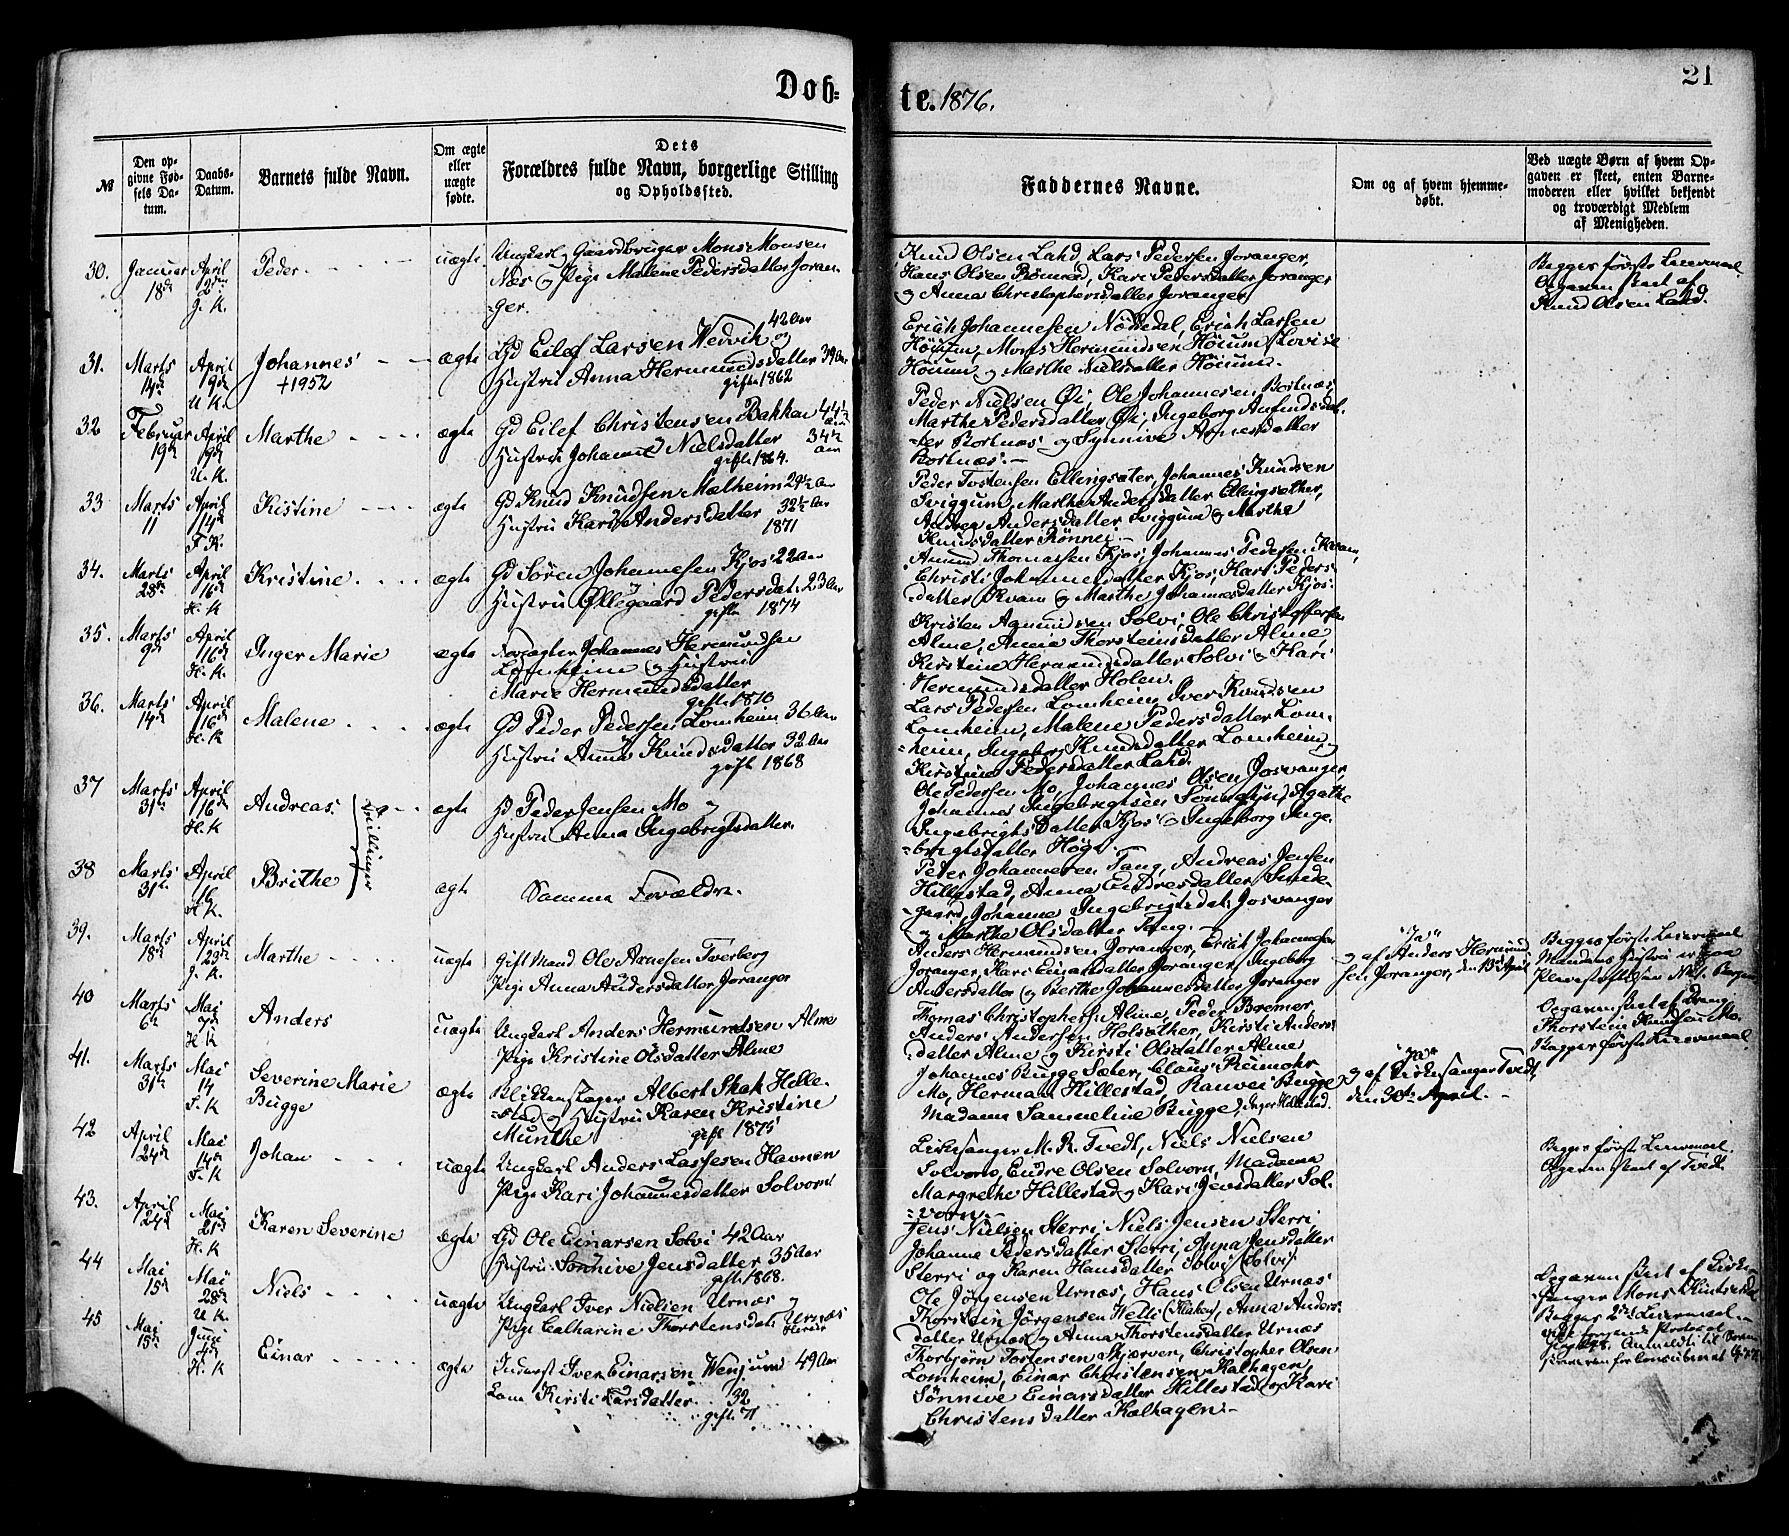 Dob-
te. 1876.
21
№
Den op-
givne Fød-
sels Da-
tum.
Daabs-
Datum.
Barnets fulde Navn.
Om ægte
eller
uægte
fødte.
Dets
Forældres fulde Navn, borgerlige Stilling
og Opholdssted.
Faddernes Navne.
Om og af hvem hjemme-
døbt.
Ved uægte Børn af hvem Op-
gaven er skeet, enten Barne-
moderen eller hvilket bekjendt
og troværdigt Medlem
af Menigheden.
30. Januar 18de April 2den J. K. Peder uægte
Ungkarl Gaardbruger Mons Monsen
Næs og Pige Malene Pedersdatter Joran-
ger.
Knud Olsen Lahd, Lars Pedersen Joranger,
Hans Olsen Rømned, Kari Pedersdatter Joranger
og Anna Christophersdatter Joranger
Begges første Leiermaal
Opgaven skeet af
Knud Olsen Lahd.
31. Marts 14de April 9de U. K. Johannes +1952 ægte
Gd Eilef Larsen Wedvik 42 Aar og
Hustru Anna Hermundsdatter 39 Aar
gifte 1862
Erich Johannesen Nøttedal, Erich Larsen
Høium, Mons Hermundsen Høium, Lovise
Høium og Marthe Nielsdatter Høium.
32 Februar 19de April 9de U. K. Marthe ægte
Gd Eilef Christensen Bakken 44½ Aar
Hustru Johanne Nielsdatter 34½ Aar
gifte 1864.
Peder Nielsen Øi, Ole Johannesen Bortnæs,
Marthe Pedersdatter Øi, Ingeborg Anfindsdat-
ter Bortnæs og Synnive Arnesdatter
Bortnæs.
33 Marts 11 April 14de F. K. Kistine ægte
Gd Knud Knudsen Mælheim 29½ Aar
Hustru Kari Andersdatter 32½ Aar
1871
Peder Tostensen Ellingsæter, Johannes Knudsen
Sviggum, Marthe Andersdatter Ellingsæther,
Andrea Andersdatter Sviggum og Marthe
Knudsdatter Rønnei.
34. Marts 28de April 16de H. K. Kristine ægte
Gd Søren Johannesen Kjos 22 Aar
Hustru Øllegaard Pedersdat. 23 Aar
gifte 1874
Amund Thomassen Kjos, Johannes Pedersen Kvam,
Christi Johannesdatter Kjos, Kari Peders-
datter Kvam og Marthe Johannesdatter Kjos.
35. Marts 9de April 16de H. K. Inger Marie ægte
Johannes Hermundsen
Lomheim og Hustru
Marie Hermundsdatter
gifte 1870
Kristen Amundsen Solvi, Ole Christoffersen
Alme, Anna Thorsteinsdatter Alme
Kirstine Hermundsdatter Solvi og Kari
Hermundsdatter Holen.
36. Marts 14de April 16de H. K Malene ægte
Gd Peder Pedersen Lomheim 36 Aar
Hustru Anna Knudsdatter 32 Aar
gifte 1868
Lars Pedersen Lomheim, Iver Knudsen
Lomheim, Malene Pedersdatter Lom-
heim, Ingeborg Knudsdatter Lomheim og
Kirstine Pedersdatter Lahd.
37 Marts 31te April 16de H. K Andreas. Tvillinger ægte
Gd Peder Jensen Mo og
Hustru Anna Ingebrigtsdatter.
Ole Pedersen Mo, Johannes Olsen Josvanger,
Johannes Ingebrigtsen Sønnesind, Agathe
Ingebrigtsdatter Kjos og Ingeborg Inge-
brigtsdatter Høge
38 Marts 31te April 16 H. K. Brithe ægte
Samme Forældre.
Peder Johannesen Tang, Andreas Jensen
Hillestad, Anna Endresdatter Sande-
gaard, Johanne Ingebrigtsdat. Josvanger
og Marthe Olsdatter Tang.
39. Marts 18de April 23de J. K. Marthe uægte
Gift Mand Ole Arnesen Tverberg
Pige Anna Andersdatter Joranger
Anders Hermundsen Joranger, Erich Johannesen
Joranger, Kari Einarsdatter Joranger, Ingeborg
Andersdatter og Berthe Johannesdatter Joranger
"Ja"
og af Anders Hermund-
sen Joranger, den 15de April
Begges første Leiermaal
Mandens Hustru er paa
Pleiestiftelsen No 1. Bergen
40 Marts 6te Mai 7de H K Anders uægte
Ungkarl Anders Hermundsen Alme
Pige Kristine Olsdatter Alme
Thomas Christophersen Alme, Peder Bremer
Anders Andersen Holsæther, Kirsti Anders-
datter Alme og Kirsti Olsdatter Alme
Opgaven skeet af Dreng
Thorstein Knudsen Mo.
Begges første Leiermaal
41. Marts 31te Mai 14 F. K Severine Marie Bugge ægte
Blikkenslager Albert Skak Hille-
stad og Hustru Karen Kristine
Munthe gifte 1875
Johannes Bugge Sæter, Claus Riumohr
Mo, Herman Hillestad, Ranvei Bugge
Madame Sammeline Bugge, Inger Hillestad.
"Ja"
og af Kirkesanger Tvedt,
den 30te April.
42 April 24de Mai 14de F. K Johan uægte
Ungkarl Anders Lassesen Havnen
Pige Kari Johannesdatter Solvorn
Kirkesanger M. R. Tvedt, Niels Nielsen
Solvorn, Endre Olsen Solvorn, Madame
Margrethe Hillestad og Kari Jensdatter Sol-
vorn.
Begges første Leiermaal
Opgaven skeet af Tvedt
43. April 24de Mai 21de H. K Karen Severine ægte
Gd Ole Einarsen Solvi 42 Aar
Hustru Sønnive Jensdatter 35 Aar
gifte 1868.
Jens Nielsen Sterri, Niels Jensen Sterri,
Johanne Pedersdatter Sterri, Anna Jensdatter
Sterri og Karen Hansdatter Solvi (Solvi)
44 Mai 15de Mai 28de U. K. Niels uægte
Ungkarl Iver Nielsen Urnæs og
Pige Catharine Thorstensdat. Urnæs
Ole Jørgensen Urnæs, Hans Olsen Urnæs
Thorstein Jørgensen Welti (Kløkken), Anna Anders-
datter Urnæs og Anna Thorstensdatter Urnæs
Opgaven skeet af Kirke-
sanger Mons
Begges 2det Leiermaal
45 Mai 15de Juni 4de H. K Einar ægte
Inderst Iver Einarsen Wenjum 49 Aar
Kone Kirsti Larsdatter 32
gifte 71
Thorbjørn Tostensen Skjærven, Christopher Olsen
Lomheim, Einar Christensen Kalhagen,
Sønnive Einarsdatter Hillestad og Kari
Christensdatter Kalhagen.